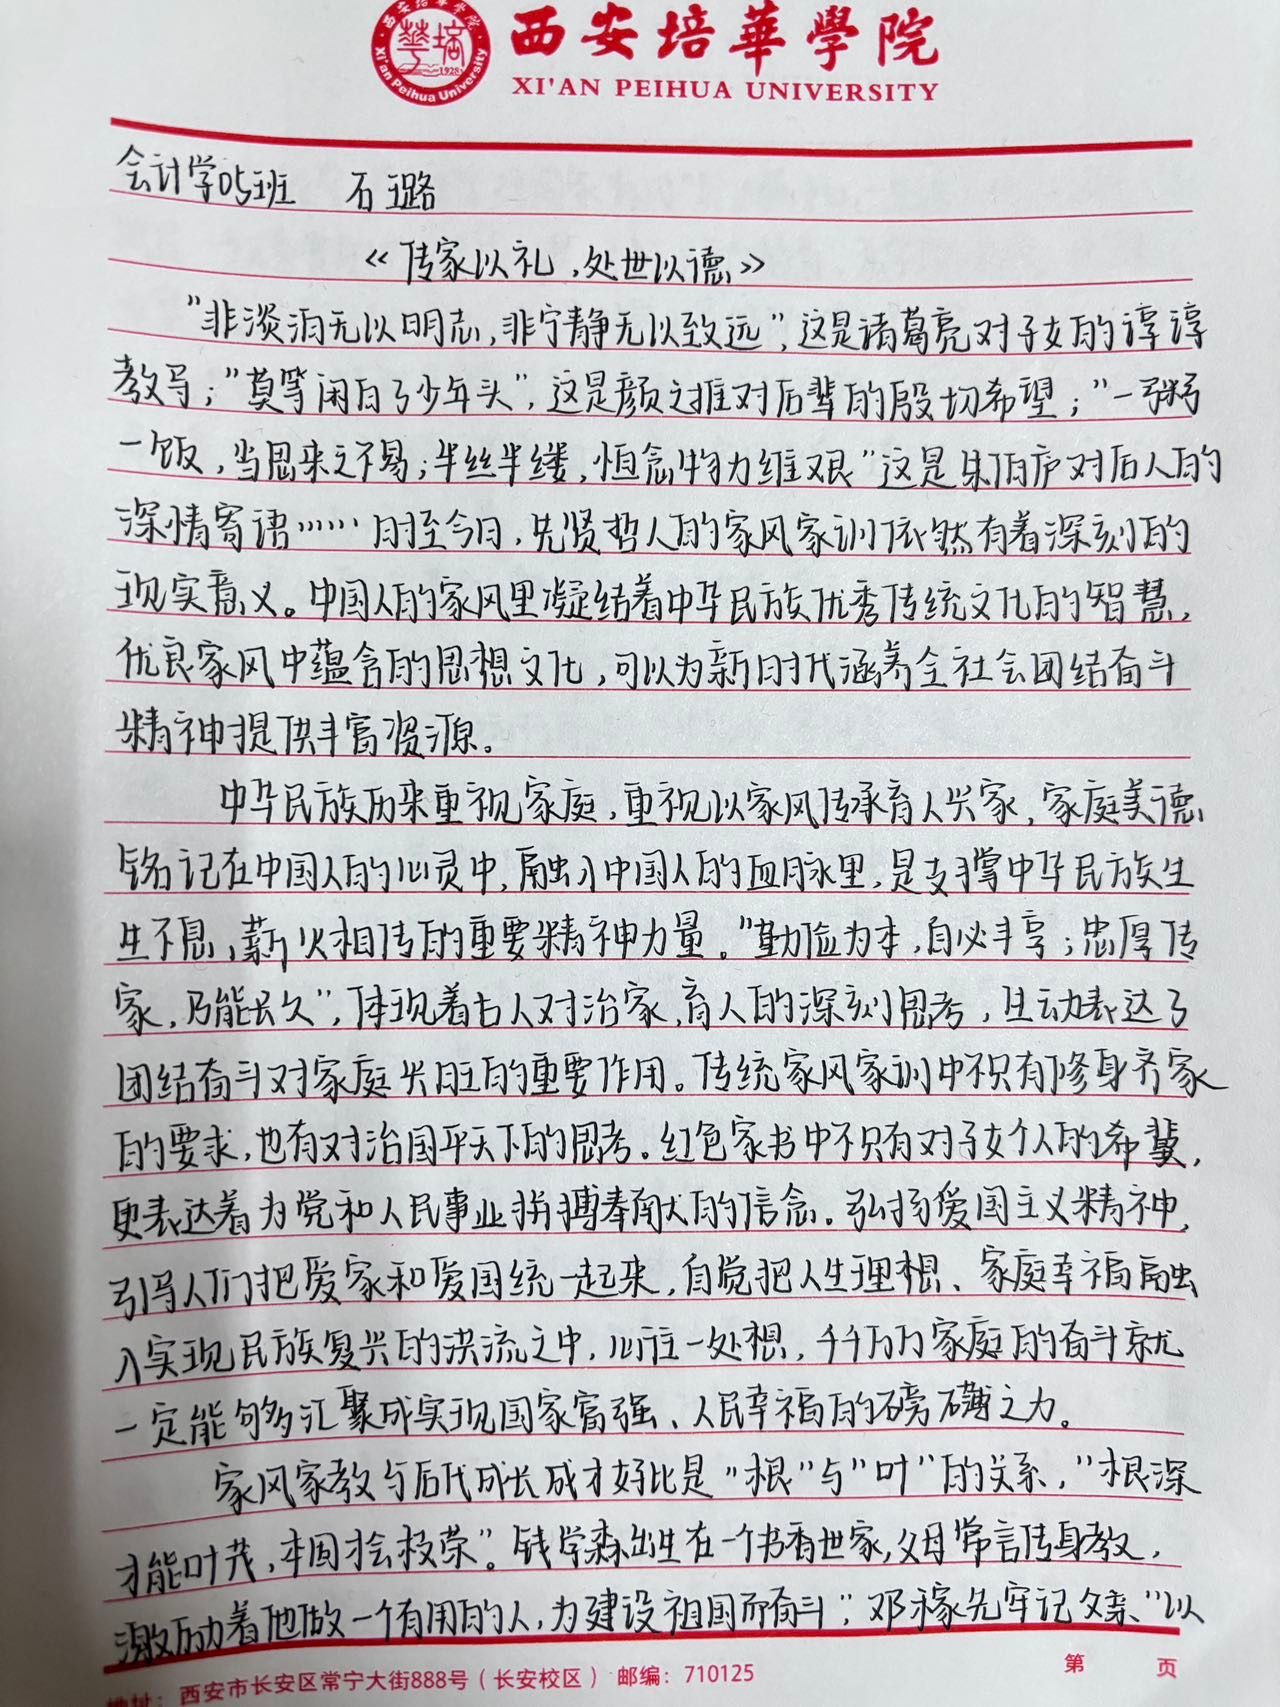 西安培華學院
XI'AN PEIHUA UNIVERSITY
西安培华学院
Xi'an Peihua University
1928
会计学05班 石璐
《传家以礼,处世以德》
"非淡泊无以明志,非宁静无以致远",这是诸葛亮对子女的谆谆
教导;"莫等闲白了少年头",这是颜之推对后辈的殷切希望;"一粥
一饭,当思来之不易;半丝半缕,恒念物力维艰"这是朱伯庐对后人的
深情寄语……时至今日,先贤哲人的家风家训依然有着深刻的
现实意义。中国人的家风里凝结着中华民族优秀传统文化的智慧,
优良家风中蕴含的思想文化,可以为新时代涵养全社会团结奋斗
精神提供丰富资源。
中华民族历来重视家庭,重视以家风传承育人兴家,家庭美德
铭记在中国人的心灵中,融入中国人的血脉里,是支撑中华民族生
生不息,薪火相传的重要精神力量。"勤俭为本,自必丰亨;忠厚传
家,乃能长久",体现着古人对治家,育人的深刻思考,生动表达了
团结奋斗对家庭兴旺的重要作用。传统家风家训中不只有修身齐家
的要求,也有对治国平天下的思考。红色家书中不只有对子女个人的希冀,
更表达着为党和人民事业拼搏奉献的信念。弘扬爱国主义精神,
引导人们把爱家和爱国统一起来,自觉把人生理想、家庭幸福融
入实现民族复兴的洪流之中,心往一处想,千千万万家庭的奋斗就
一定能够汇聚成实现国家富强、人民幸福的磅礴之力。
家风家教与后代成长成才好比是"根"与"叶"的关系,"根深
才能叶茂,本固才会枝荣"。钱学森出生在一个书香世家,父母常言传身教,
激励着他做一个有用的人,为建设祖国而奋斗";邓稼先牢记父亲"以
地址:西安市长安区常宁大街888号(长安校区) 邮编:710125
第 页